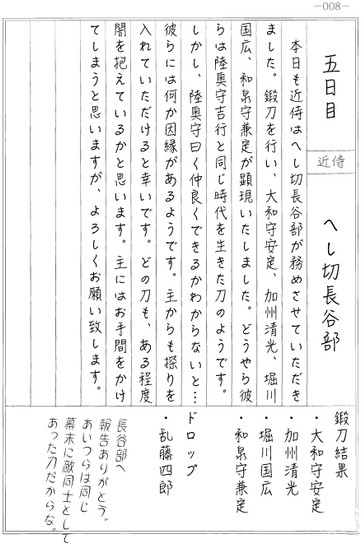 —008—
五日目
近侍
へし切長谷部
本日も近侍はへし切長谷部が務めさせていただき
ました。鍛刀を行い、大和守安定、加州清光、堀川
国広、和泉守兼定が顕現いたしました。どうやら彼
らは陸奥守吉行と同じ時代を生きた刀のようです。
しかし、陸奥守曰く仲良くできるかわからないと…
彼らには何か因縁があるようです。主からも探りを
入れていただけると幸いです。どの刀も、ある程度
闇を抱えているかと思います。主にはお手間をかけ
てしまうと思いますが、よろしくお願い致します。
鍛刀結果
・大和守安定
・加州清光
・堀川国広
・和泉守兼定
ドロップ
・乱藤四郎
長谷部へ
報告ありがとう。
あいつらは同じ
幕末に敵同士として
あった刀だからな。